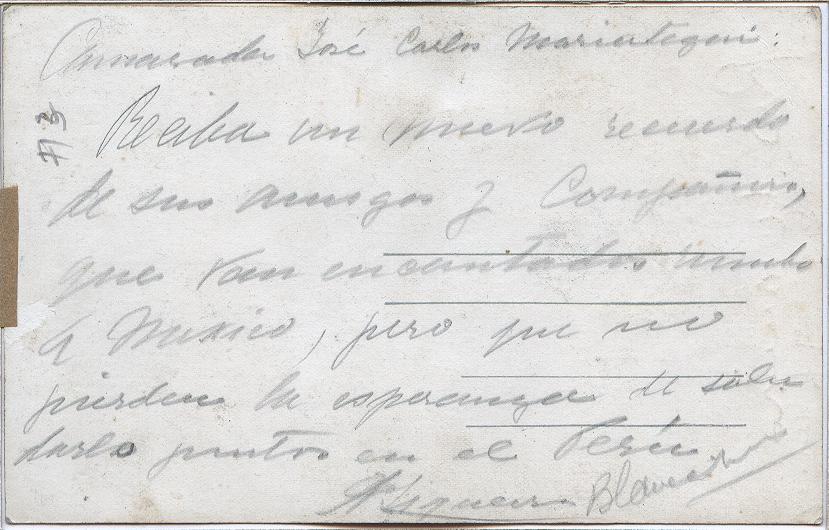 Camarada José Carlos Mariategui:
Reciba un nuevo recuerdo
de sus amigos y Compañeros,
que van encantados rumbo
a Mexico, pero que no
pierden la esperanza de salu
darlo juntos en el Perú.
Siqueiros Blanca Luz